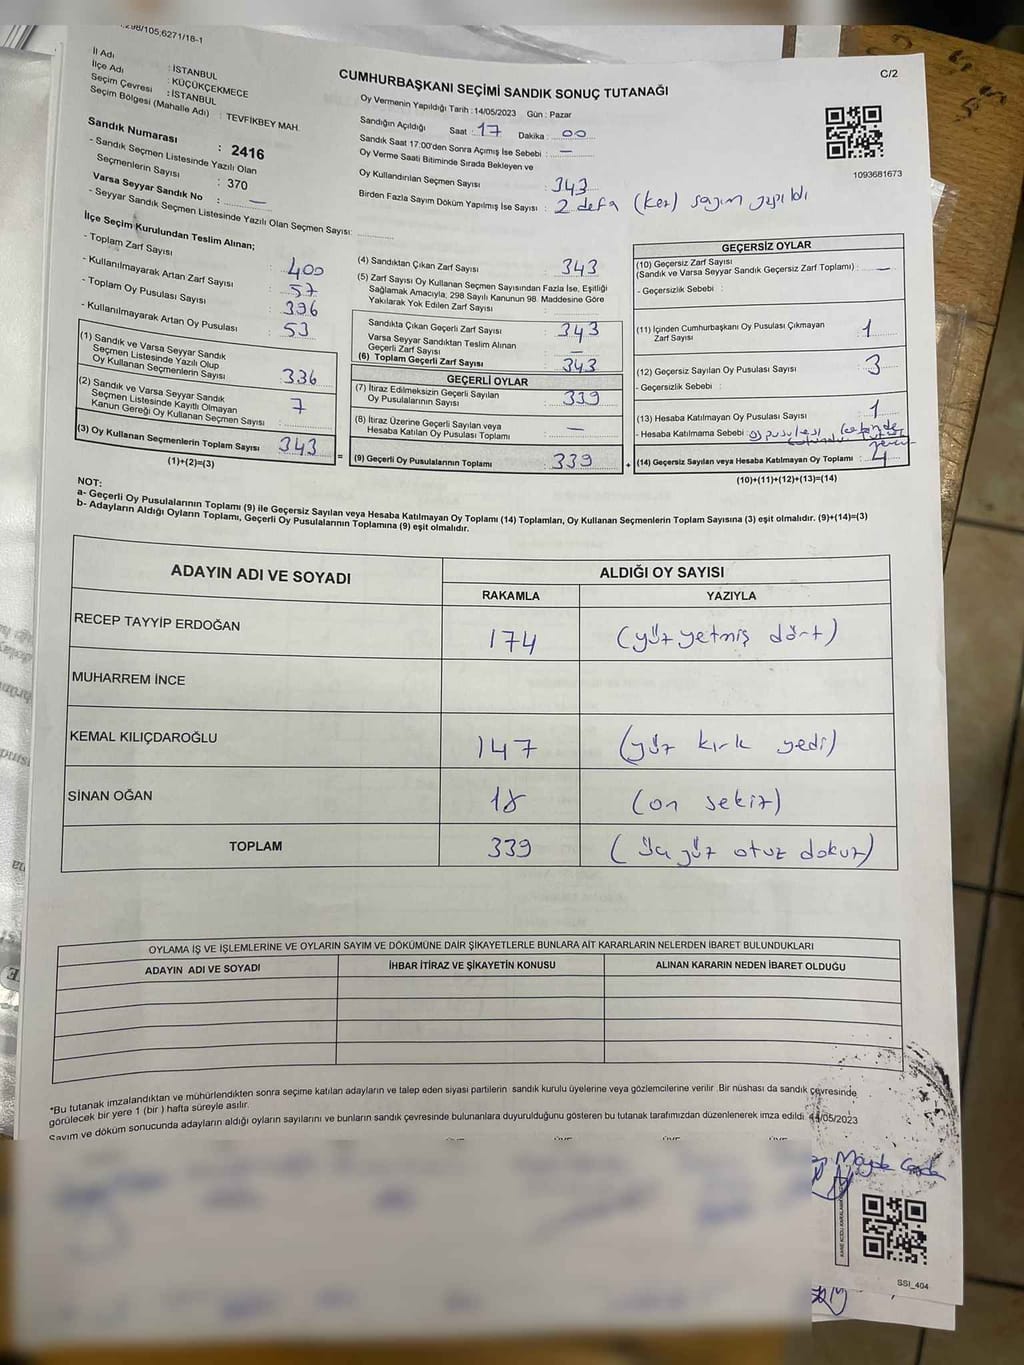 298/105,6271/18-1
C/2
İl Adı : İSTANBUL
İlçe Adı : KÜÇÜKÇEKMECE
Seçim Çevresi : İSTANBUL
Seçim Bölgesi (Mahalle Adı) : TEVFİKBEY MAH.
Sandık Numarası : 2416
- Sandık Seçmen Listesinde Yazılı Olan
Seçmenlerin Sayısı : 370
Varsa Seyyar Sandık No : —
- Seyyar Sandık Seçmen Listesinde Yazılı Olan Seçmen Sayısı:
CUMHURBAŞKANI SEÇİMİ SANDIK SONUÇ TUTANAĞI
Oy Vermenin Yapıldığı Tarih :14/05/2023 Gün : Pazar
Sandığın Açıldığı Saat : 17 Dakika : 00
Sandık Saat 17:00'den Sonra Açımış İse Sebebi : —
Oy Verme Saati Bitiminde Sırada Bekleyen ve
Oy Kullandırılan Seçmen Sayısı : 343
Birden Fazla Sayım Döküm Yapılmış İse Sayısı : 2 defa (kez) sayım yapıldı
1093681673
İlçe Seçim Kurulundan Teslim Alınan;
- Toplam Zarf Sayısı : 400
- Kullanılmayarak Artan Zarf Sayısı : 57
- Toplam Oy Pusulası Sayısı : 396
- Kullanılmayarak Artan Oy Pusulası : 53
(1) Sandık ve Varsa Seyyar Sandık
Seçmen Listesinde Yazılı Olup
Oy Kullanan Seçmenlerin Sayısı : 336
(2) Sandık ve Varsa Seyyar Sandık
Seçmen Listesinde Kayıtlı Olmayan
Kanun Gereği Oy Kullanan Seçmen Sayısı : 7
(3) Oy Kullanan Seçmenlerin Toplam Sayısı : 343
(1)+(2)=(3)
(4) Sandıktan Çıkan Zarf Sayısı : 343
(5) Zarf Sayısı Oy Kullanan Seçmen Sayısından Fazla İse, Eşitliği
Sağlamak Amacıyla; 298 Sayılı Kanunun 98. Maddesine Göre
Yakılarak Yok Edilen Zarf Sayısı :
Sandıkta Çıkan Geçerli Zarf Sayısı : 343
Varsa Seyyar Sandıktan Teslim Alınan
Geçerli Zarf Sayısı : —
(6) Toplam Geçerli Zarf Sayısı : 343
GEÇERLİ OYLAR
(7) İtiraz Edilmeksizin Geçerli Sayılan
Oy Pusulalarının Sayısı : 339
(8) İtiraz Üzerine Geçerli Sayılan veya
Hesaba Katılan Oy Pusulası Toplamı : —
= (9) Geçerli Oy Pusulalarının Toplamı : 339 +
GEÇERSİZ OYLAR
(10) Geçersiz Zarf Sayısı
(Sandık ve Varsa Seyyar Sandık Geçersiz Zarf Toplamı) : —
- Geçersizlik Sebebi :
(11) İçinden Cumhurbaşkanı Oy Pusulası Çıkmayan
Zarf Sayısı : 1
(12) Geçersiz Sayılan Oy Pusulası Sayısı : 3
- Geçersizlik Sebebi :
(13) Hesaba Katılmayan Oy Pusulası Sayısı : 1
- Hesaba Katılmama Sebebi : oy pusulası
(14) Geçersiz Sayılan veya Hesaba Katılmayan Oy Toplamı : 4
(10)+(11)+(12)+(13)=(14)
NOT:
a- Geçerli Oy Pusulalarının Toplamı (9) ile Geçersiz Sayılan veya Hesaba Katılmayan Oy Toplamı (14) Toplamları, Oy Kullanan Seçmenlerin Toplam Sayısına (3) eşit olmalıdır. (9)+(14)=(3)
b- Adayların Aldığı Oyların Toplamı, Geçerli Oy Pusulalarının Toplamına (9) eşit olmalıdır.
ADAYIN ADI VE SOYADI ALDIĞI OY SAYISI
RAKAMLA YAZIYLA
RECEP TAYYİP ERDOĞAN 174 (yüz yetmiş dört)
MUHARREM İNCE
KEMAL KILIÇDAROĞLU 147 (yüz kırk yedi)
SİNAN OĞAN 18 (on sekiz)
TOPLAM 339 (üç yüz otuz dokuz)
OYLAMA İŞ VE İŞLEMLERİNE VE OYLARIN SAYIM VE DÖKÜMÜNE DAİR ŞİKAYETLERLE BUNLARA AİT KARARLARIN NELERDEN İBARET BULUNDUKLARI
ADAYIN ADI VE SOYADI İHBAR İTİRAZ VE ŞİKAYETİN KONUSU ALINAN KARARIN NEDEN İBARET OLDUĞU
*Bu tutanak imzalandıktan ve mühürlendikten sonra seçime katılan adayların ve talep eden siyasi partilerin sandık kurulu üyelerine veya gözlemcilerine verilir .Bir nüshası da sandık çevresinde
görülecek bir yere 1 (bir ) hafta süreyle asılır.
Sayım ve döküm sonucunda adayların aldığı oyların sayılarını ve bunların sandık çevresinde bulunanlara duyurulduğunu gösteren bu tutanak tarafımızdan düzenlenerek imza edildi. 14/05/2023
SSI_404